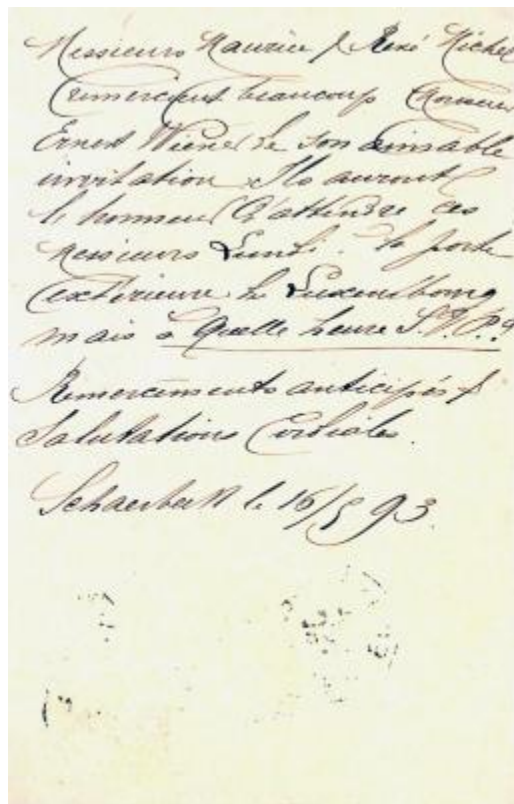 Messieurs Maurice & René Michel
remercient beaucoup Monsieur
Ernest Wiener de son aimable
invitation. Ils auront
le honneur d'attendre ces
Messieurs Lundi. la porte
extérieure de Luxembourg
mais à quelle heure S.V.P.?
Remerciments anticipés &
Salutations Cordiales.
Schaerbeek le 16/5 93.